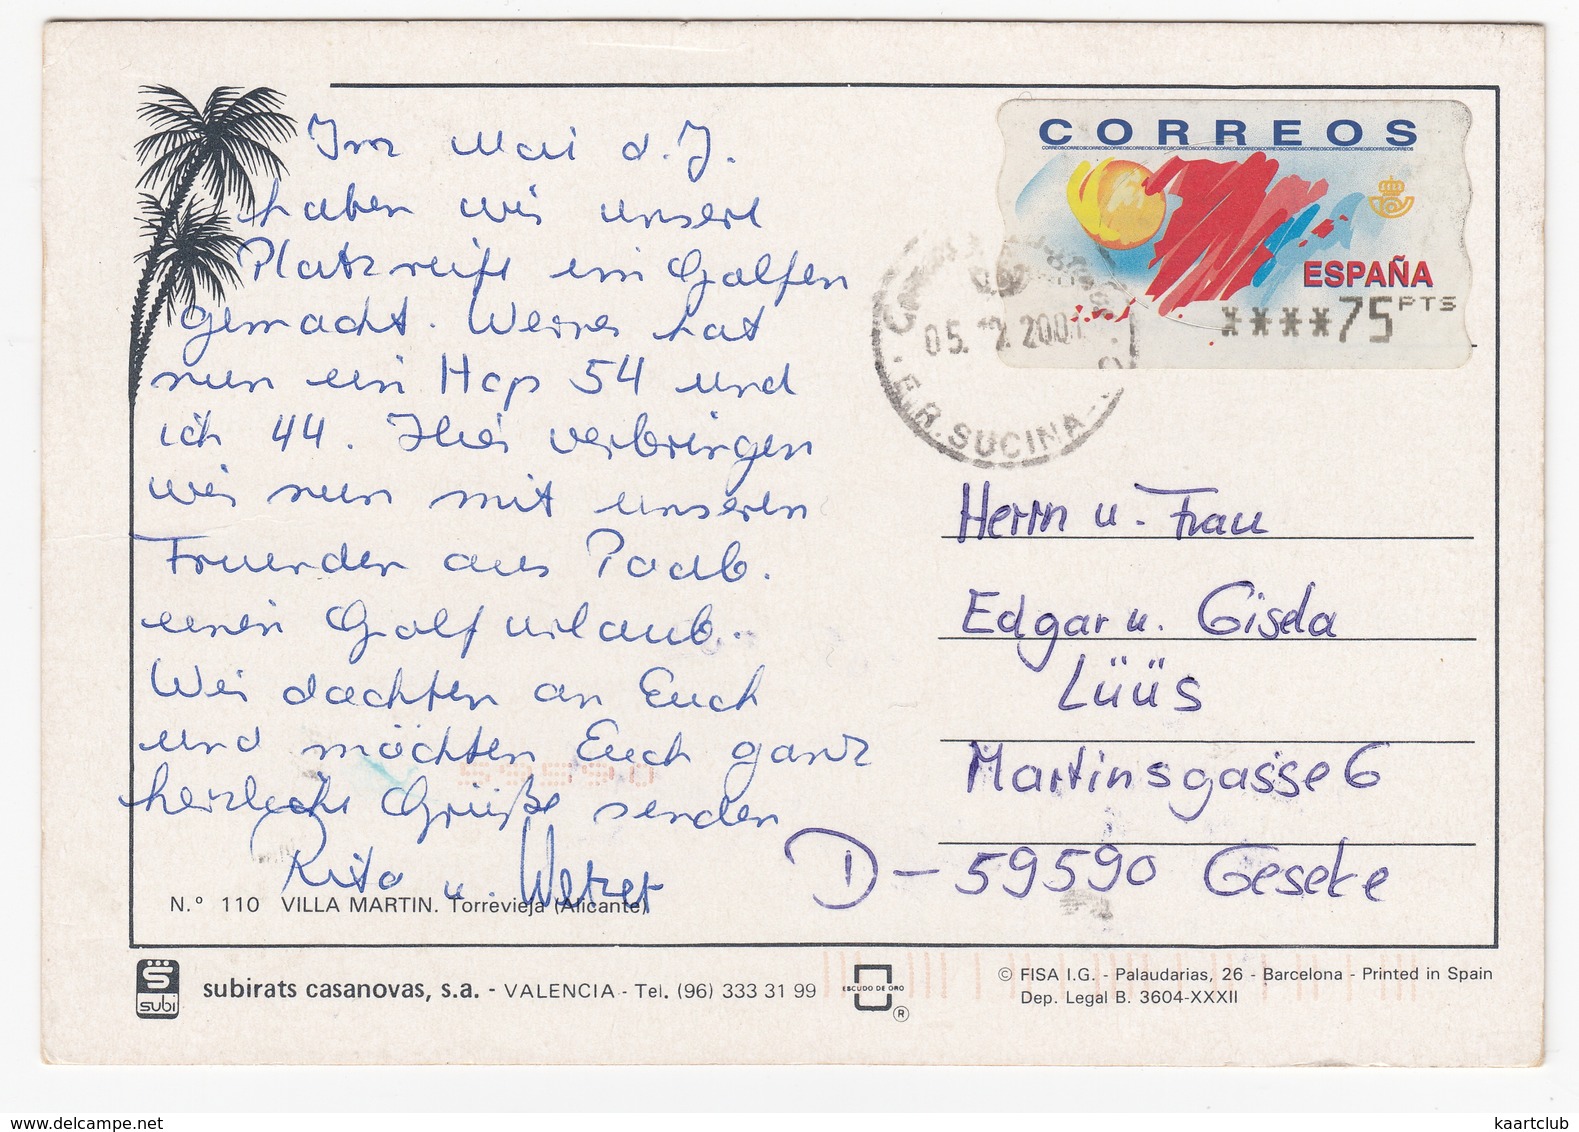 Im Mai d. J.
haben wir unsere
Platzreife im Golfen
gemacht. Werner hat
nun ein Hcp 54 und
ich 44. Hier verbringen
wir nun mit unseren
Freunden aus Padb.
einen Golfurlaub.
Wir dachten an Euch
und möchten Euch ganz
herzliche Grüße senden
Rita u. Werner
N.º 110 VILLA MARTIN. Torrevieja (Alicante)
CORREOS
ESPAÑA
****75 PTS
05. 2001
E.R. SUCINA
Herrn u. Frau
Edgar u. Gisela
Lüüs
Martinsgasse 6
D-59590 Geseke
59590
subi
subirats casanovas, s.a. - VALENCIA - Tel. (96) 333 31 99
ESCUDO DE ORO
®
© FISA I.G. - Palaudarias, 26 - Barcelona - Printed in Spain
Dep. Legal B. 3604-XXXII
www.delcampe.net
kaartclub